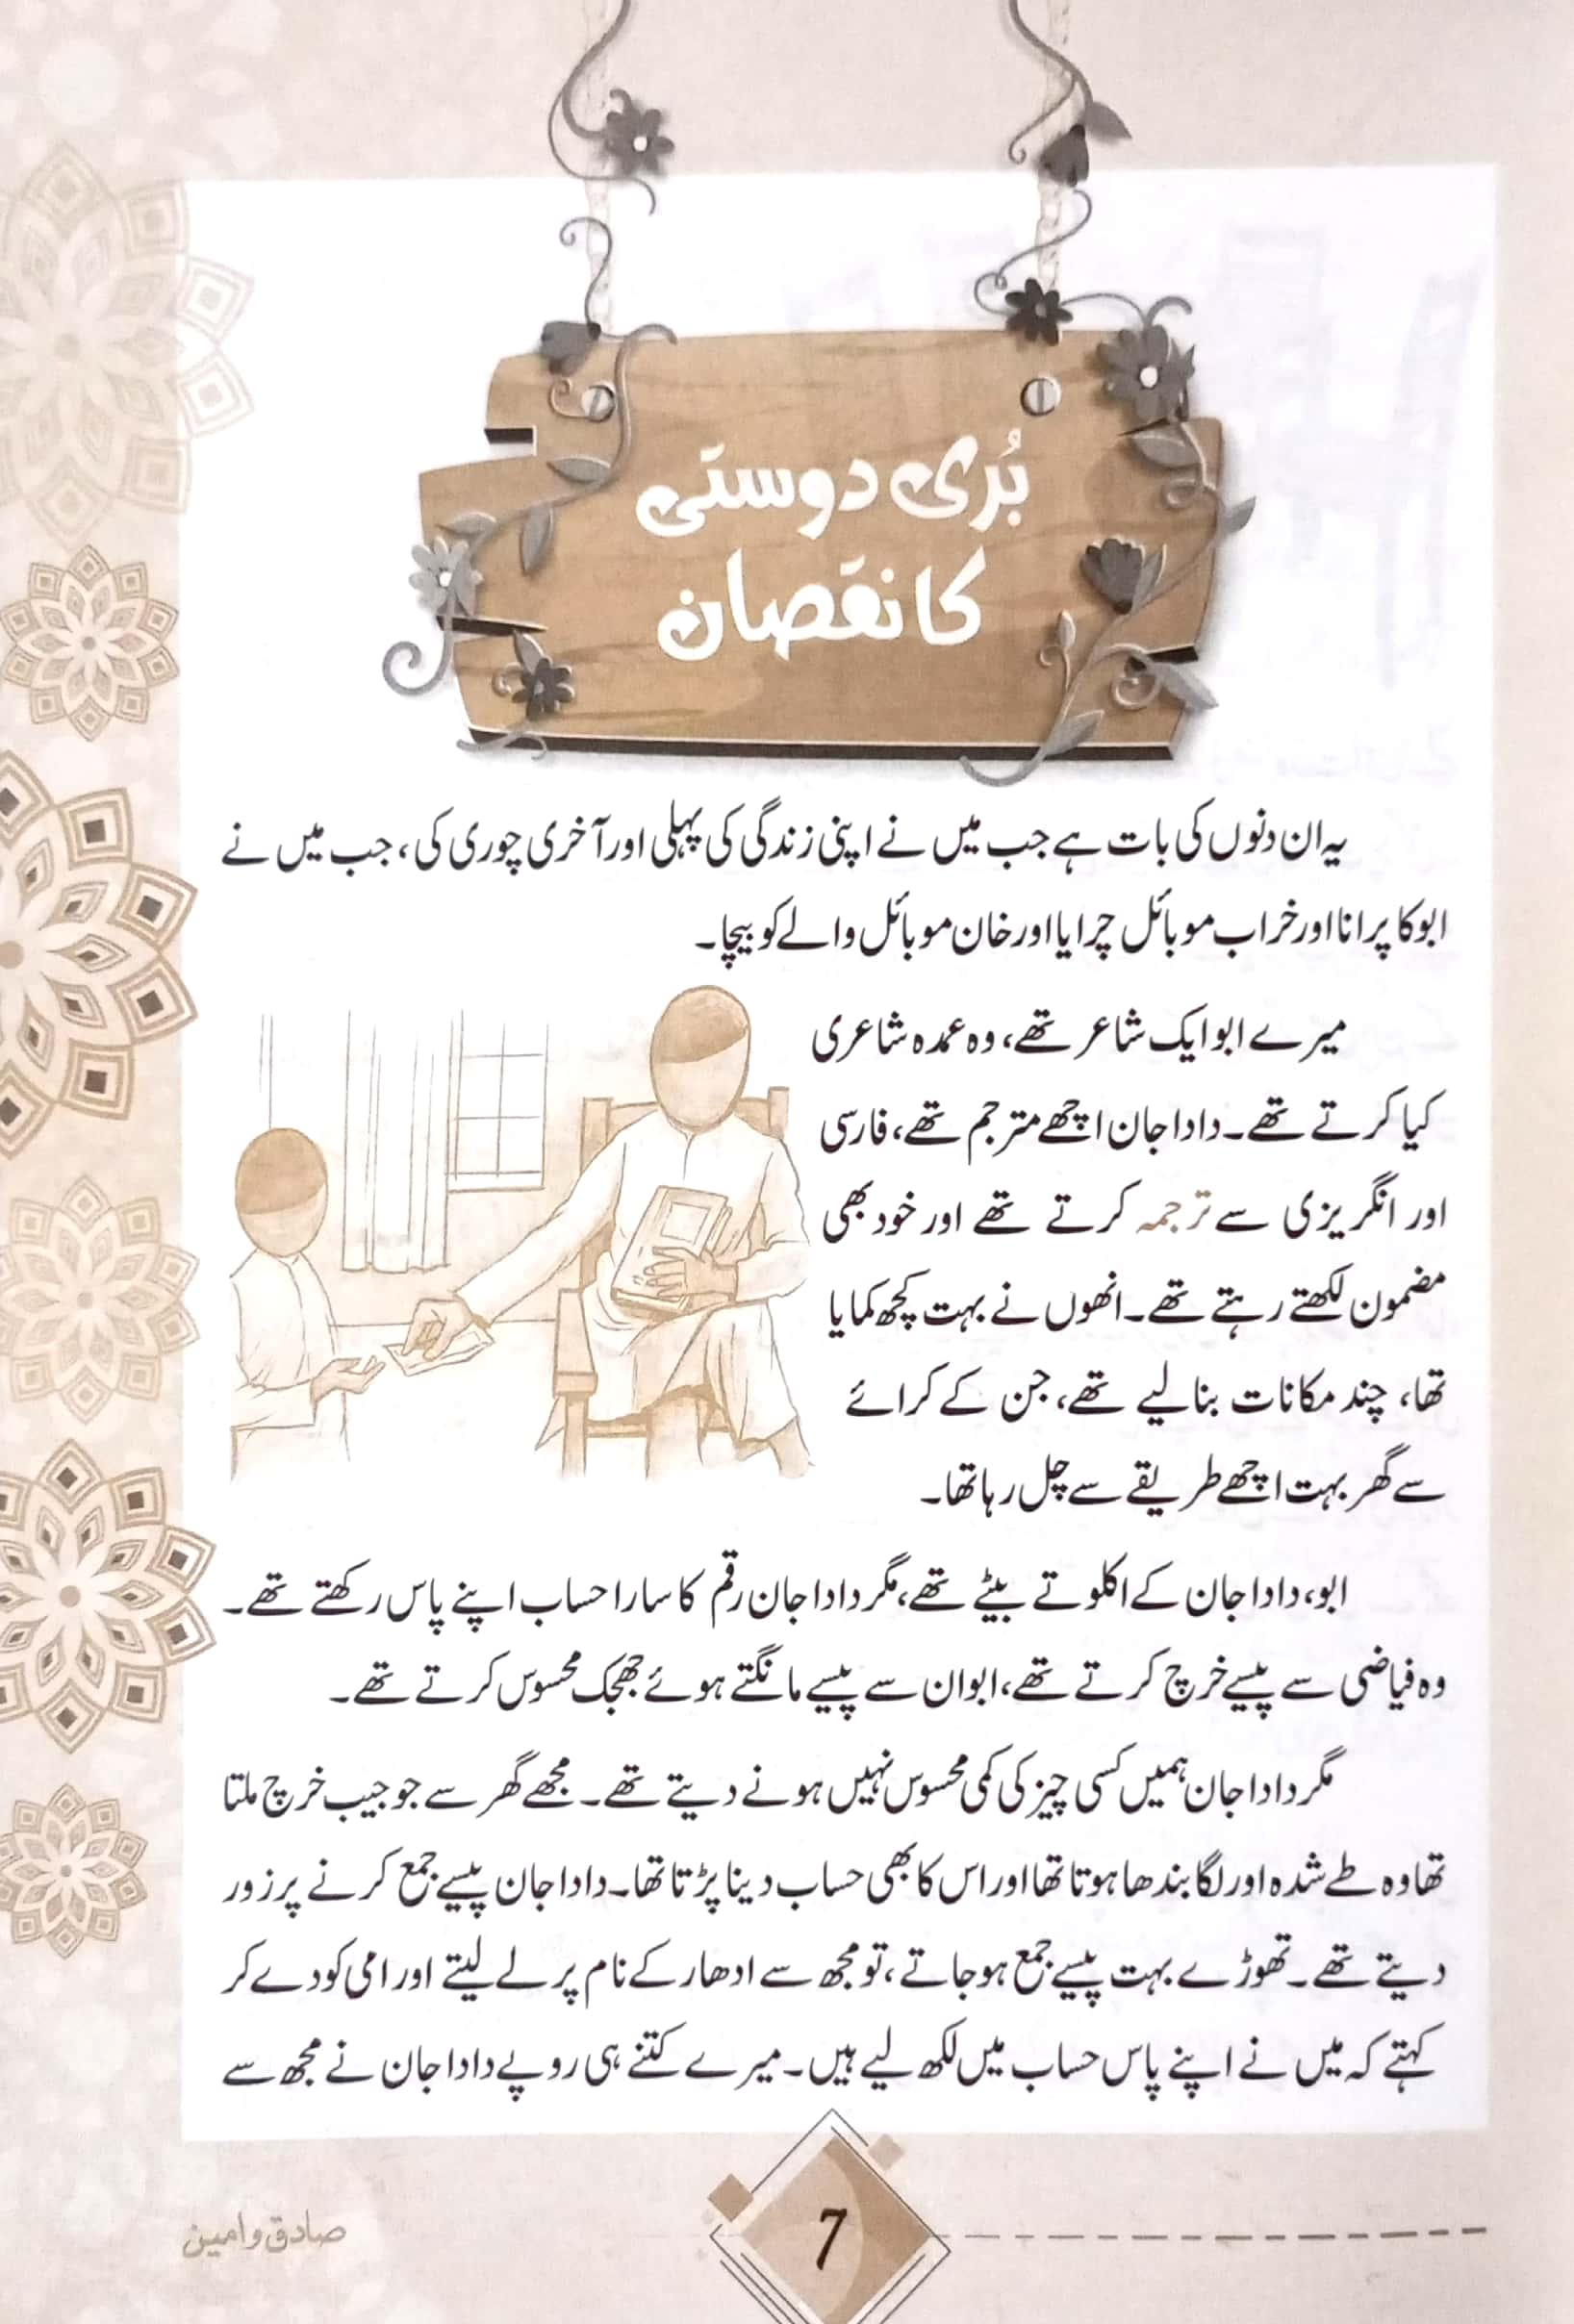 بُری دوستی
کا نقصان
یہ ان دنوں کی بات ہے جب میں نے اپنی زندگی کی پہلی اور آخری چوری کی، جب میں نے
ابو کا پرانا اور خراب موبائل چرایا اور خان موبائل والے کو بیچا۔
میرے ابو ایک شاعر تھے، وہ عمدہ شاعری
کیا کرتے تھے۔ دادا جان اچھے مترجم تھے، فارسی
اور انگریزی سے ترجمہ کرتے تھے اور خود بھی
مضمون لکھتے رہتے تھے۔ انھوں نے بہت کچھ کمایا
تھا، چند مکانات بنا لیے تھے، جن کے کرائے
سے گھر بہت اچھے طریقے سے چل رہا تھا۔
ابو، دادا جان کے اکلوتے بیٹے تھے، مگر دادا جان رقم کا سارا حساب اپنے پاس رکھتے تھے۔
وہ فیاضی سے پیسے خرچ کرتے تھے، ابو ان سے پیسے مانگتے ہوئے جھجک محسوس کرتے تھے۔
مگر دادا جان ہمیں کسی چیز کی کمی محسوس نہیں ہونے دیتے تھے۔ مجھے گھر سے جو جیب خرچ ملتا
تھا وہ طے شدہ اور لگا بندھا ہوتا تھا اور اس کا بھی حساب دینا پڑتا تھا۔ دادا جان پیسے جمع کرنے پر زور
دیتے تھے۔ تھوڑے بہت پیسے جمع ہو جاتے، تو مجھ سے ادھار کے نام پر لے لیتے اور امی کو دے کر
کہتے کہ میں نے اپنے پاس حساب میں لکھ لیے ہیں۔ میرے کتنے ہی روپے دادا جان نے مجھ سے
7
صادق و امین